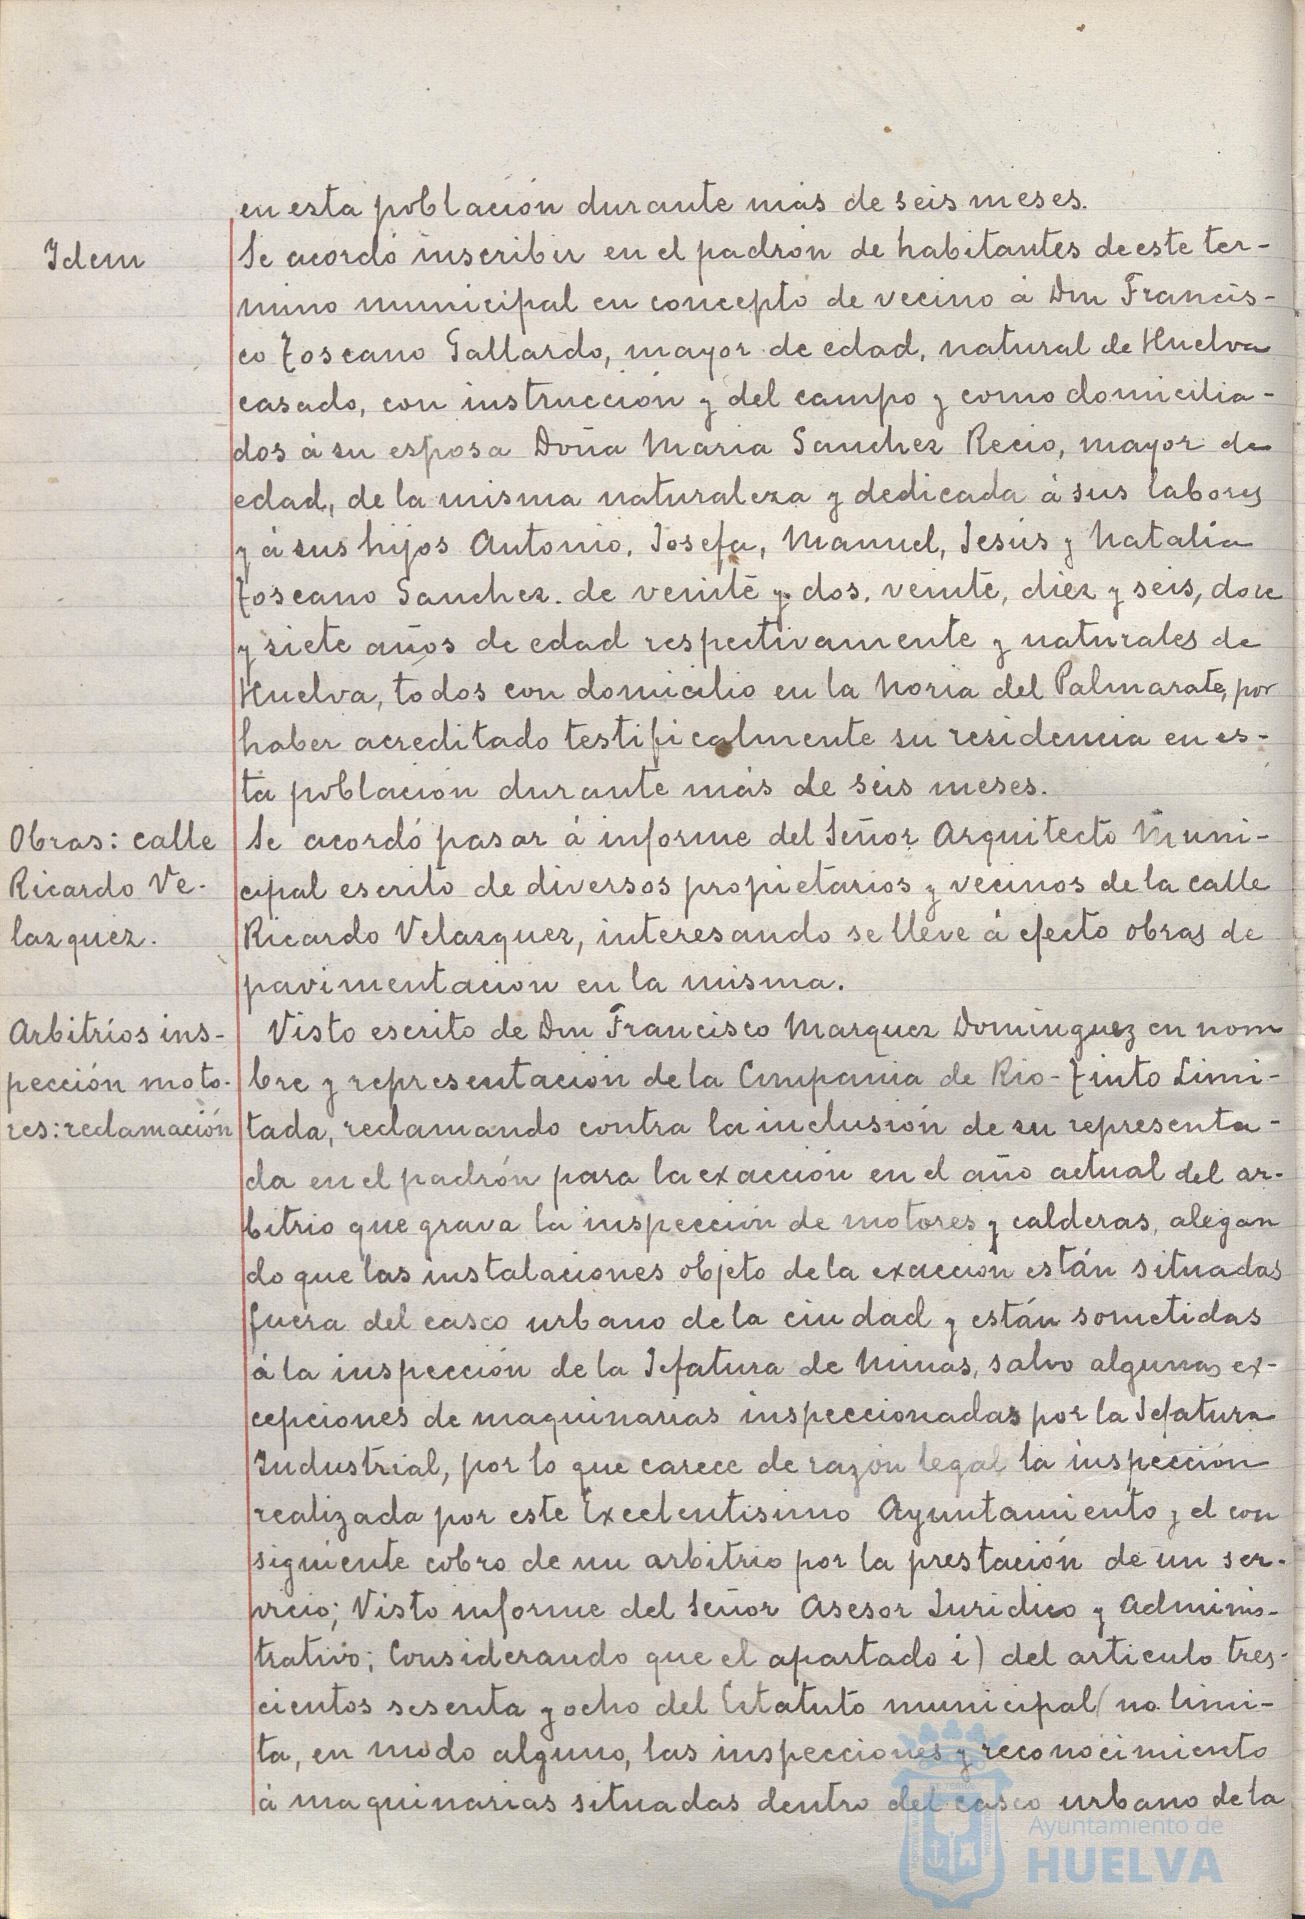 en esta población durante más de seis meses.
Idem
Se acordó inscribir en el padrón de habitantes de este ter-
mino municipal en concepto de vecino á Don Francis-
co Toscano Gallardo, mayor de edad, natural de Huelva
casado, con instrucción y del campo y como domicilia-
dos á su esposa Doña Maria Sanchez Recio, mayor de
edad, de la misma naturaleza y dedicada á sus labores
y á sus hijos Antonio, Josefa, Manuel, Jesús y Natalia
Toscano Sanchez. de veinte y dos, veinte, diez y seis, doce
y siete años de edad respectivamente y naturales de
Huelva, todos con domicilio en la Noria del Palmarate, por
haber acreditado testificalmente su residencia en es-
ta población durante más de seis meses.
Obras: calle
Ricardo Ve-
lazquez.
Se acordó pasar á informe del Señor Arquitecto Muni-
cipal escrito de diversos propietarios y vecinos de la calle
Ricardo Velazquez, interesando se lleve á efecto obras de
pavimentacion en la misma.
Arbitrios ins-
pección moto-
res: reclamación
Visto escrito de Don Francisco Marquez Dominguez en nom
bre y representacion de la Compania de Rio-Tinto Limi-
tada, reclamando contra la inclusión de su representa-
da en el padrón para la exacción en el año actual del ar-
bitrio que grava la inspección de motores y calderas, alegan
do que las instalaciones objeto de la exaccion están situadas
fuera del casco urbano de la ciudad y están sometidas
á la inspección de la Jefatura de Minas, salvo algunas ex-
cepciones de maquinarias inspeccionadas por la Jefatura
Industrial, por lo que carece de razón legal la inspección
realizada por este Excelentisimo Ayuntamiento y el con
siguiente cobro de un arbitrio por la prestación de un ser-
vicio; Visto informe del Señor Asesor Juridico y Adminis-
trativo; Considerando que el apartado i) del articulo tres-
cientos sesenta y ocho del Estatuto municipal no limi-
ta, en modo alguno, las inspecciones y reconocimiento
á maquinarias situadas dentro del casco urbano de la
Ayuntamiento de
HUELVA